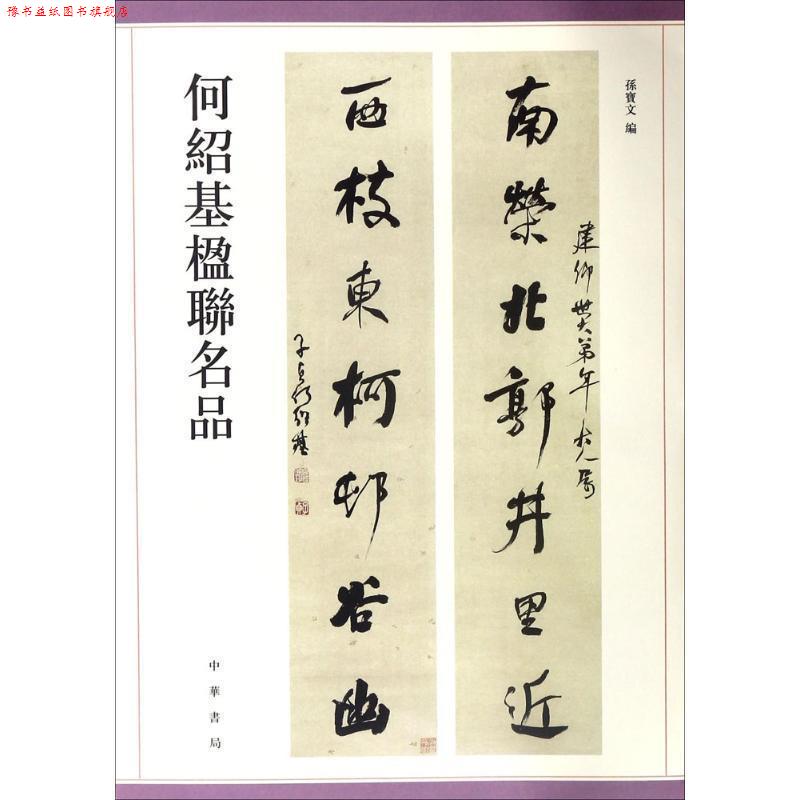 豫书益纸图书旗舰店
孫寶文 編
建卿世大弟年大人屬
南榮北郭井里近
西枝東柯邨谷幽
子貞何紹基
何紹基楹聯名品
中華書局